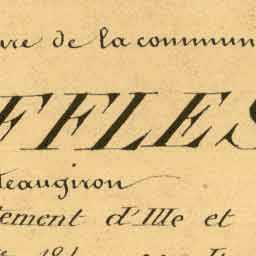 ure de la commun
FFLES
teaugiron
tement d'Ille et